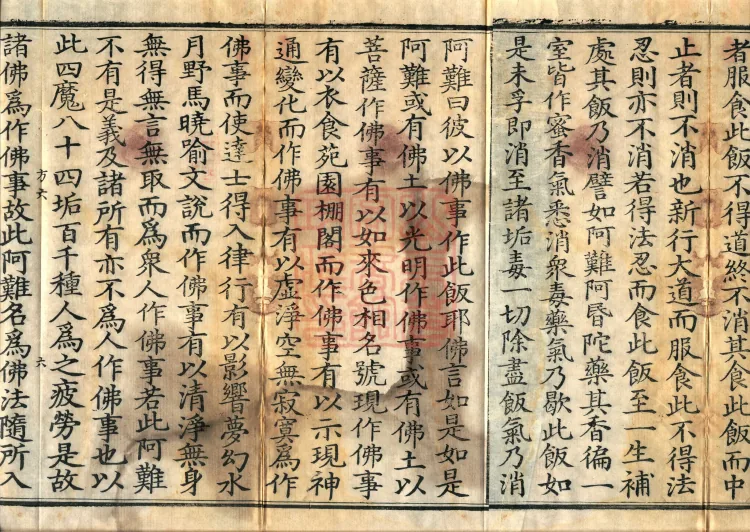 者服食此飯不得道終不消其食此飯而中
止者則不消也新行大道而服食此不得法
忍則亦不消若得法忍而食此飯至一生補
處其飯乃消譬如阿難阿昏陀藥其香徧一
室皆作蜜香氣悉消衆毒藥氣乃歇此飯如
是未孚即消至諸垢毒一切除盡飯氣乃消
阿難曰彼以佛事作此飯耶佛言如是如是
阿難或有佛土以光明作佛事或有佛土以
菩薩作佛事有以如來色相名號現作佛事
有以衣食苑園棚閣而作佛事有以示現神
通變化而作佛事有以虛淨空無寂寞爲作
佛事而使達士得入律行有以影響夢幻水
月野馬曉喻文說而作佛事有以清淨無身
無得無言無取而爲衆人作佛事若此阿難
不有是義及諸所有亦不爲人作佛事也以
此四魔八十四垢百千種人爲之疲勞是故
方六
六
諸佛爲作佛事故此阿難名爲佛法隨所入